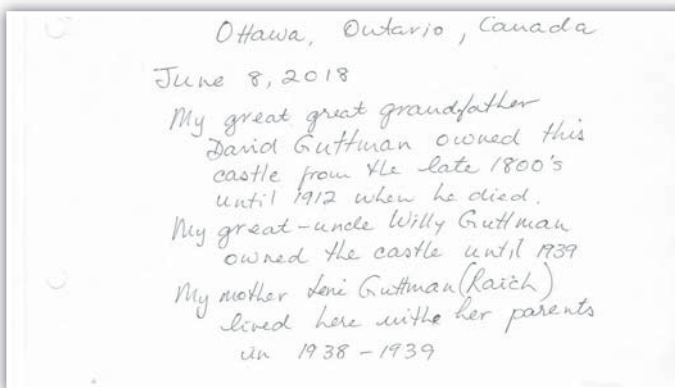 Ottawa, Ontario, Canada
June 8, 2018
My great great grandfather
David Guttman owned this
castle from the late 1800's
until 1912 when he died.
My great-uncle Willy Guttman
owned the castle until 1939
My mother Leni Guttman (Raich)
lived here withe her parents
in 1938-1939